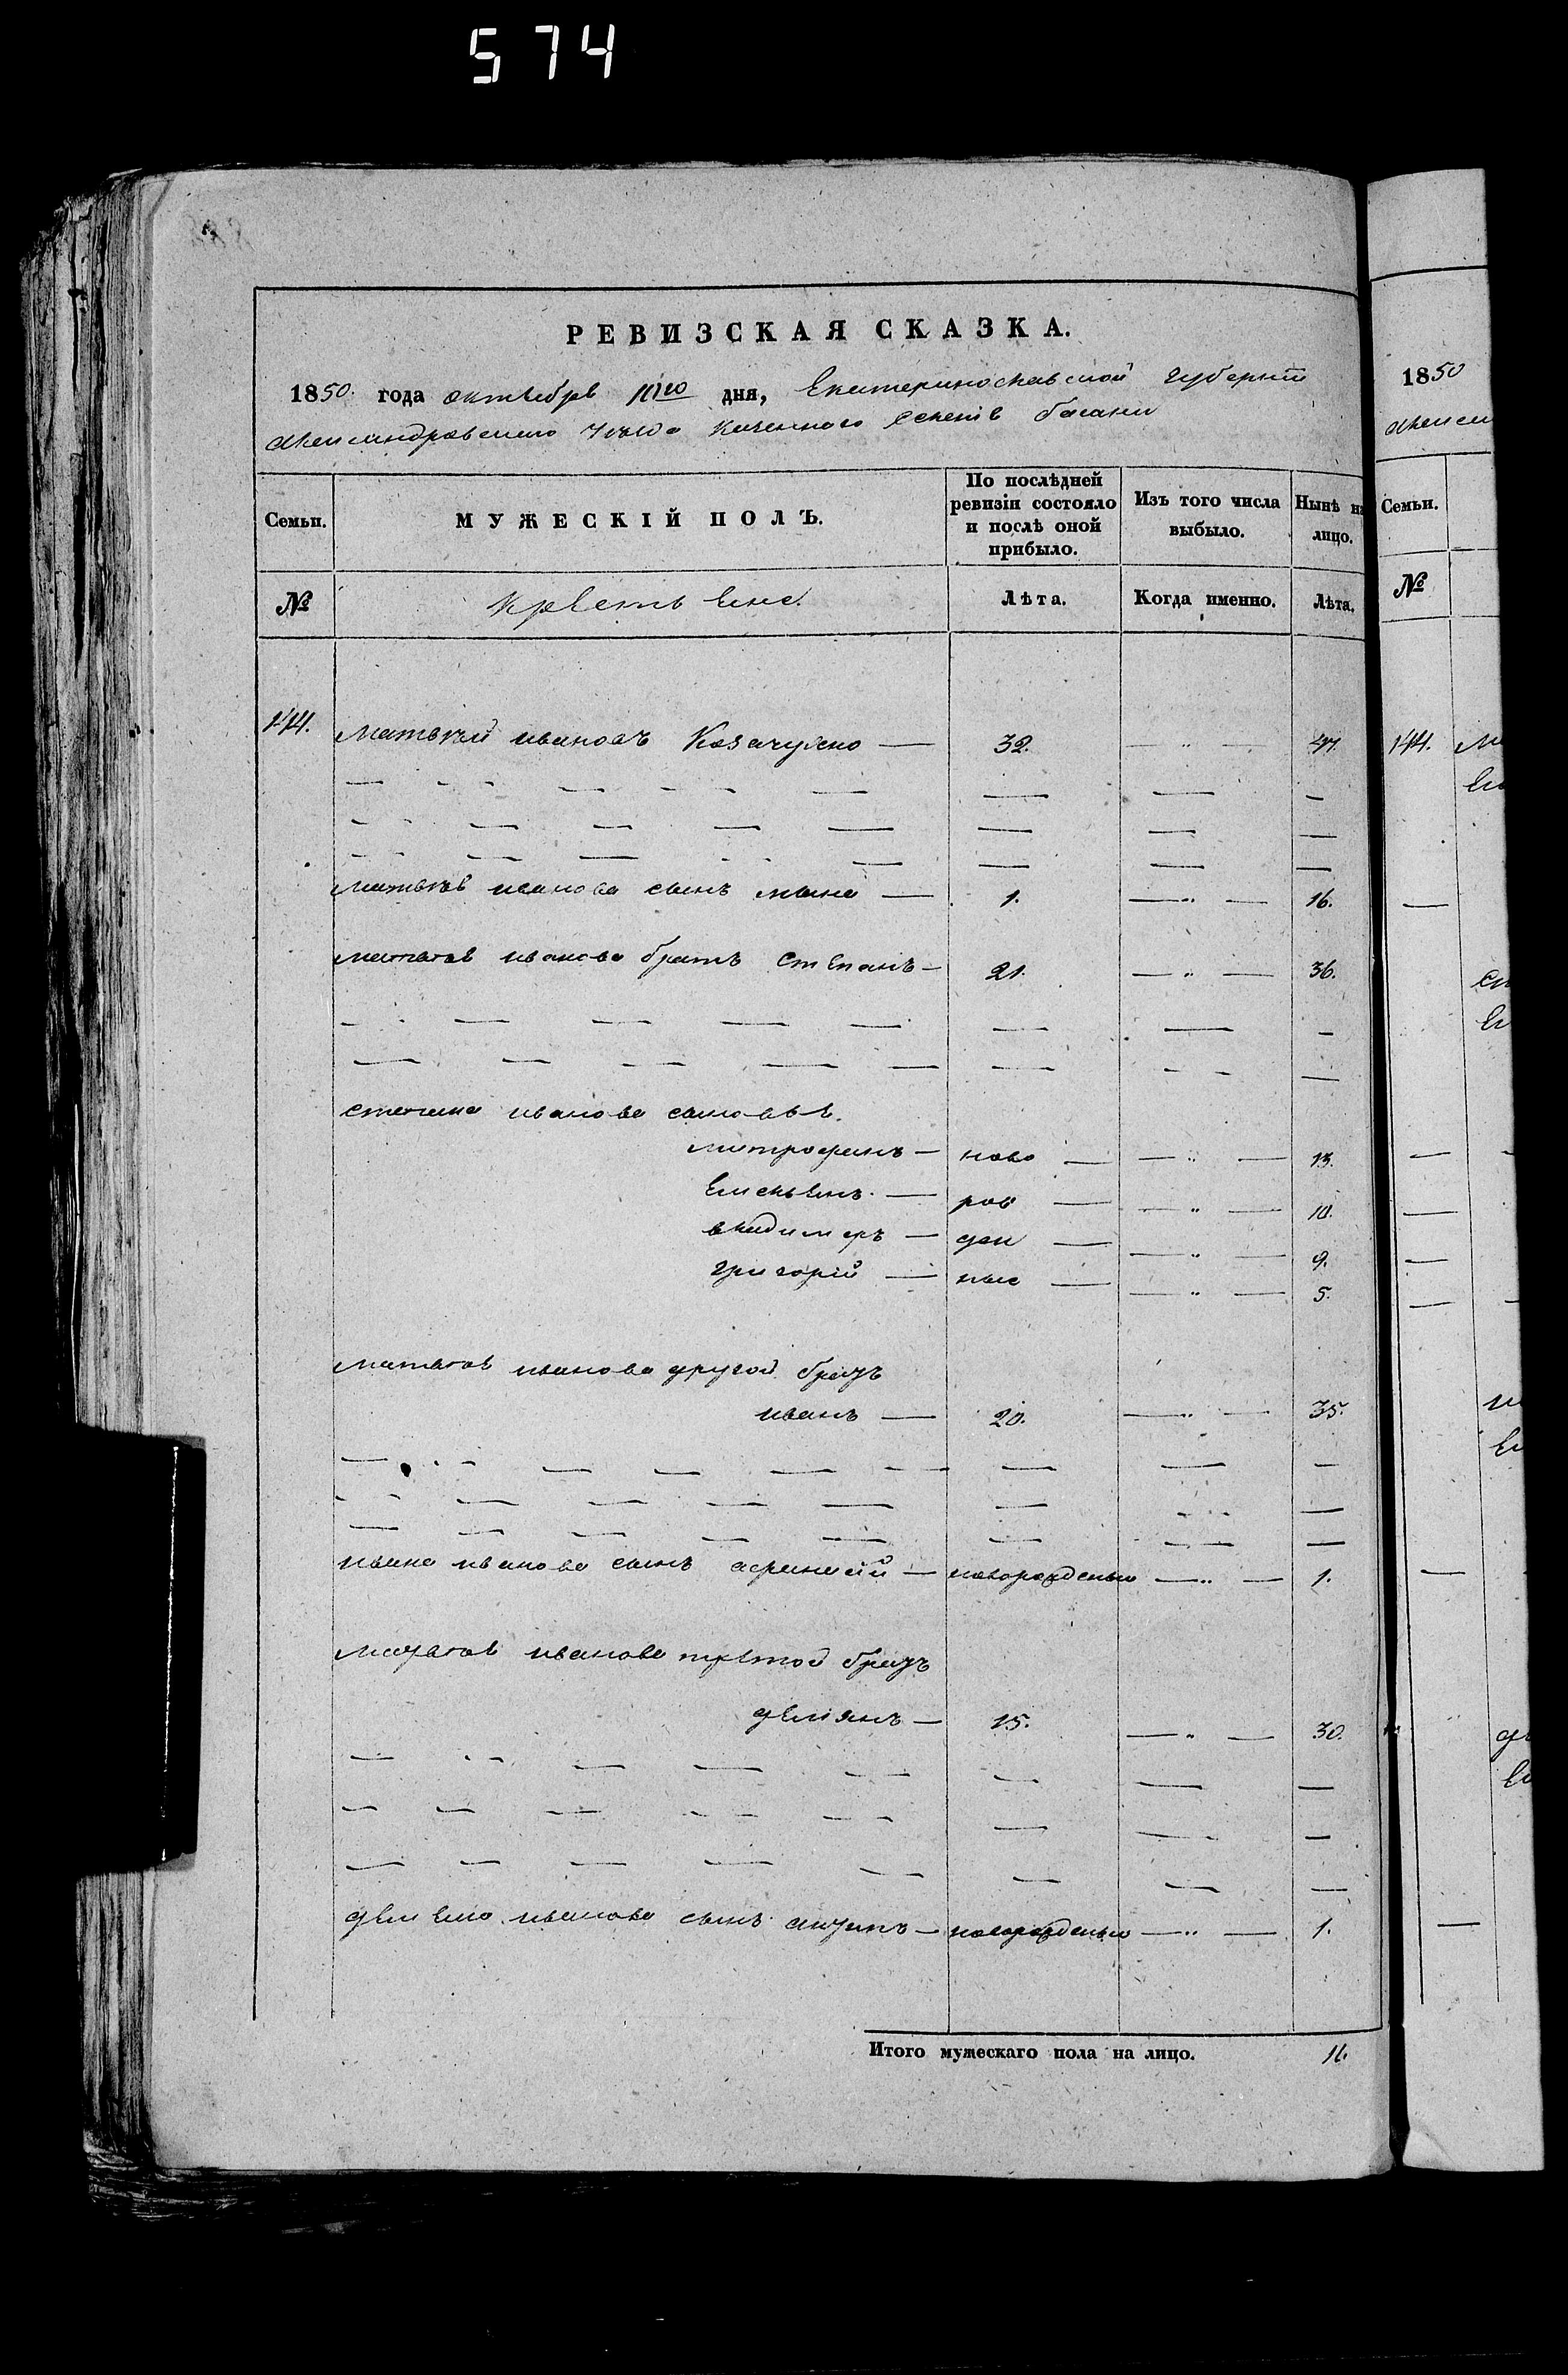 574
РЕВИЗСКАЯ СКАЗКА.
1850. года октября дня, Екатеринославской губернии
Александровского уѣзда Казенного Селенія басани
Семьи. МУЖЕСКІЙ ПОЛЪ. По послѣдней ревизіи состояло и послѣ оной прибыло. Изъ того числа выбыло. Нынѣ на лицо.
№ Крестьяне. Лѣта. Когда именно. Лѣта.
144. Матвѣй ивановъ Козачужно — 32. — " —
Матвѣя иванова сынъ — 1. — " — 16.
матвѣя иванова братъ Степанъ — 21. — " — 36.
степана иванова сыновья.
митрофанъ — ново — — " — 13.
Емельянъ — рож — — " — 10.
владимеръ — ден — — " — 9.
григорій — ные — — " — 5.
матвѣя иванова другой братъ
иванъ — 20. — " — 35.
ивана иванова сынъ афанасій — новорожденый — " — 1.
матвѣя иванова третой братъ
демянъ — 15. — " — 30.
демяна иванова сынъ антипъ — новорожденый — " — 1.
Итого мужескаго пола на лицо.
1850
Семьи.
№
144.